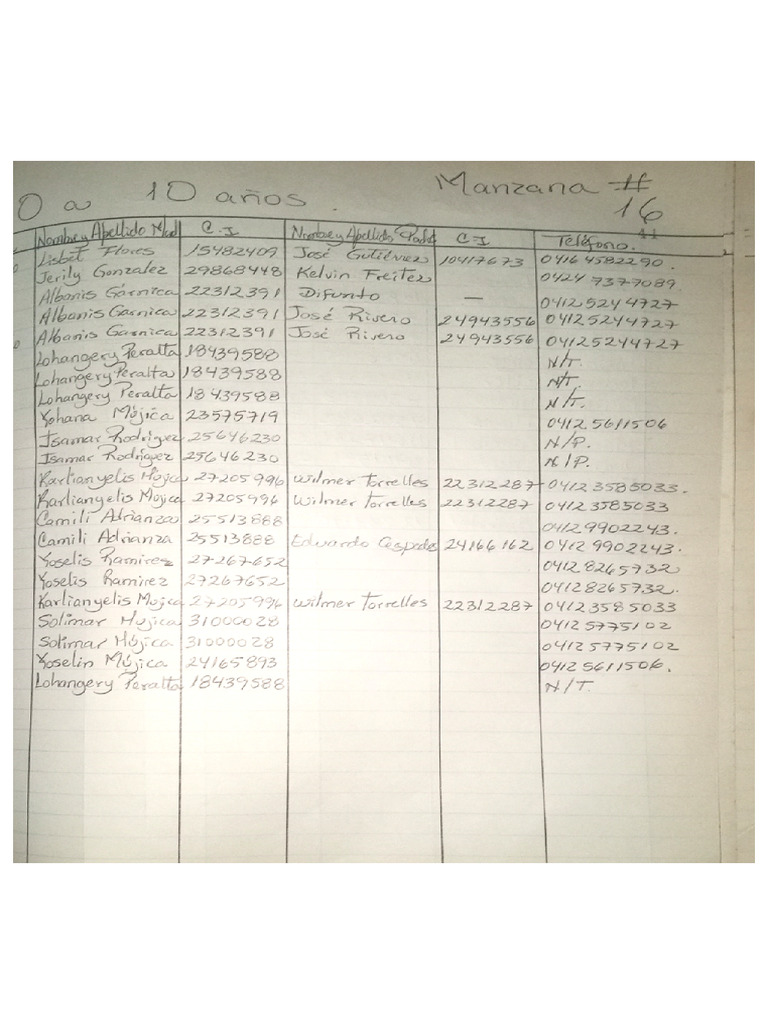 0 a 10 años. Manzana #
16
Nombre y Apellido Mad C.I Nombre y Apellido Padr C.I Teléfono.
Lisbet Flores 15482409 José Gutiérrez 10417673 04164582290.
Jerily Gonzalez 29868448 Kelvin Freitez 0424 7377089
Albanis Garnica 22312391 Difunto — 04125244727
Albanis Garnica 22312391 José Rivero 24943556 04125244727
Albanis Garnica 22312391 José Rivero 24943556 04125244727
Lohangery Peralta 18439588 N/T.
Lohangery Peralta 18439588 N/T.
Lohangery Peralta 18439588 N/T.
Yohana Mójica 23575719 04125611506
Isamar Rodríguez 25646230 N/P.
Isamar Rodríguez 25646230 N/P.
Karlianyelis Mojica 27205996 Wilmer Torrelles 22312287 04123585033.
Karlianyelis Mojica 27205996 Wilmer Torrelles 22312287 04123585033
Camili Adrianza 25513888 04129902243.
Camili Adrianza 25513888 Eduardo Cespedes 24166162 04129902243.
Yoselis Ramirez 27267652 04128265732
Yoselis Ramirez 27267652 04128265732.
Karlianyelis Mojica 27205996 Wilmer Torrelles 22312287 04123585033
Solimar Mójica 31000028 04125775102
Solimar Mójica 31000028 04125775102
Yoselin Mójica 24165893 04125611506.
Lohangery Peralta 18439588 N/T.